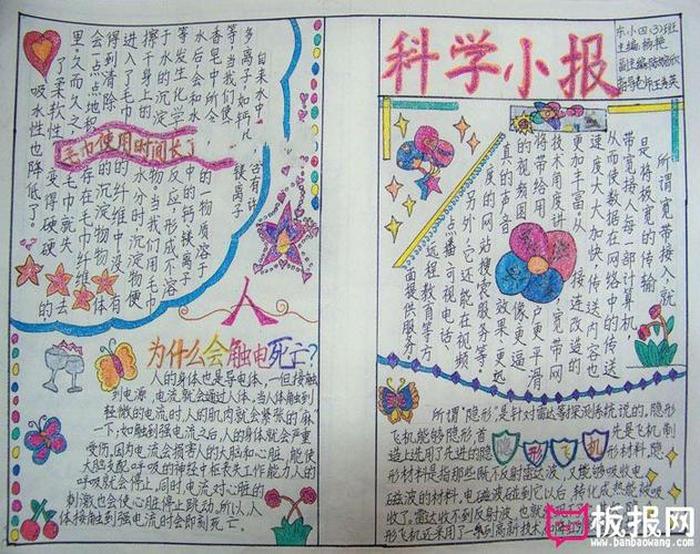 科学小报
东小四(3)班
主编:杨艳
指导老师:王秀英
所谓宽带接入就
是将极宽的传输
带宽接入每一部计算机,
从而使数据在网络中的传送
速度大大加快,传送内容也
更加丰富。从
技术角度讲
宽带网
将带给用
户更平滑
的视频图
像更逼
真的声音,
度的网站搜索服务等。
另外,它还能在视频
点播可视电话、
远程教育等方
面提供服务。
所谓"隐形",是针对雷达等探测系统说的。隐形
飞机能够隐形,首
隐形飞机
先是飞机制
造上选用了先进的隐
形材料。隐
形材料是指那些既不反射雷达波,又能够吸收电
磁波的材料,电磁波碰到它以后,转化成热能被吸
收了。雷达收不到反射波,也就
形飞机还采用了一系列高新技术,
毛巾使用时间长了
自来水中
含有许
多离子,如钙
镁离子
等,当我们使
香皂中所含
的一物质溶于
水后会和水
中的钙镁离子
等发生化学
反应,形成不溶
于水的沉淀
物。当我们用毛巾
擦干身上的
水分时,沉淀物便
进入了毛巾
的纤维中,没有
得到清除
的沉淀物物体
会一点点地积
存在毛巾纤维
里,久而久之,
毛巾就失去
了柔软性,
变得硬硬
吸水性也降低了。
人
为什么会触电死亡?
人的身体也是导电体,一但接触
到电源,电流就会通过人体。当人体触到
轻微的电流时,人的肌肉就会紧张的"麻"
一下;如触到强电流之后,人的身体就会严重
受伤,因为电流会损害人的大脑和心脏,能使
大脑支配呼吸的神经中枢丧失工作能力,人的
呼吸就会停止,同时,电流对心脏的
刺激也会使心脏停止跳动,所以,人
体接触到强电流时会即刻死亡。
板报网
www.banbaowang.com